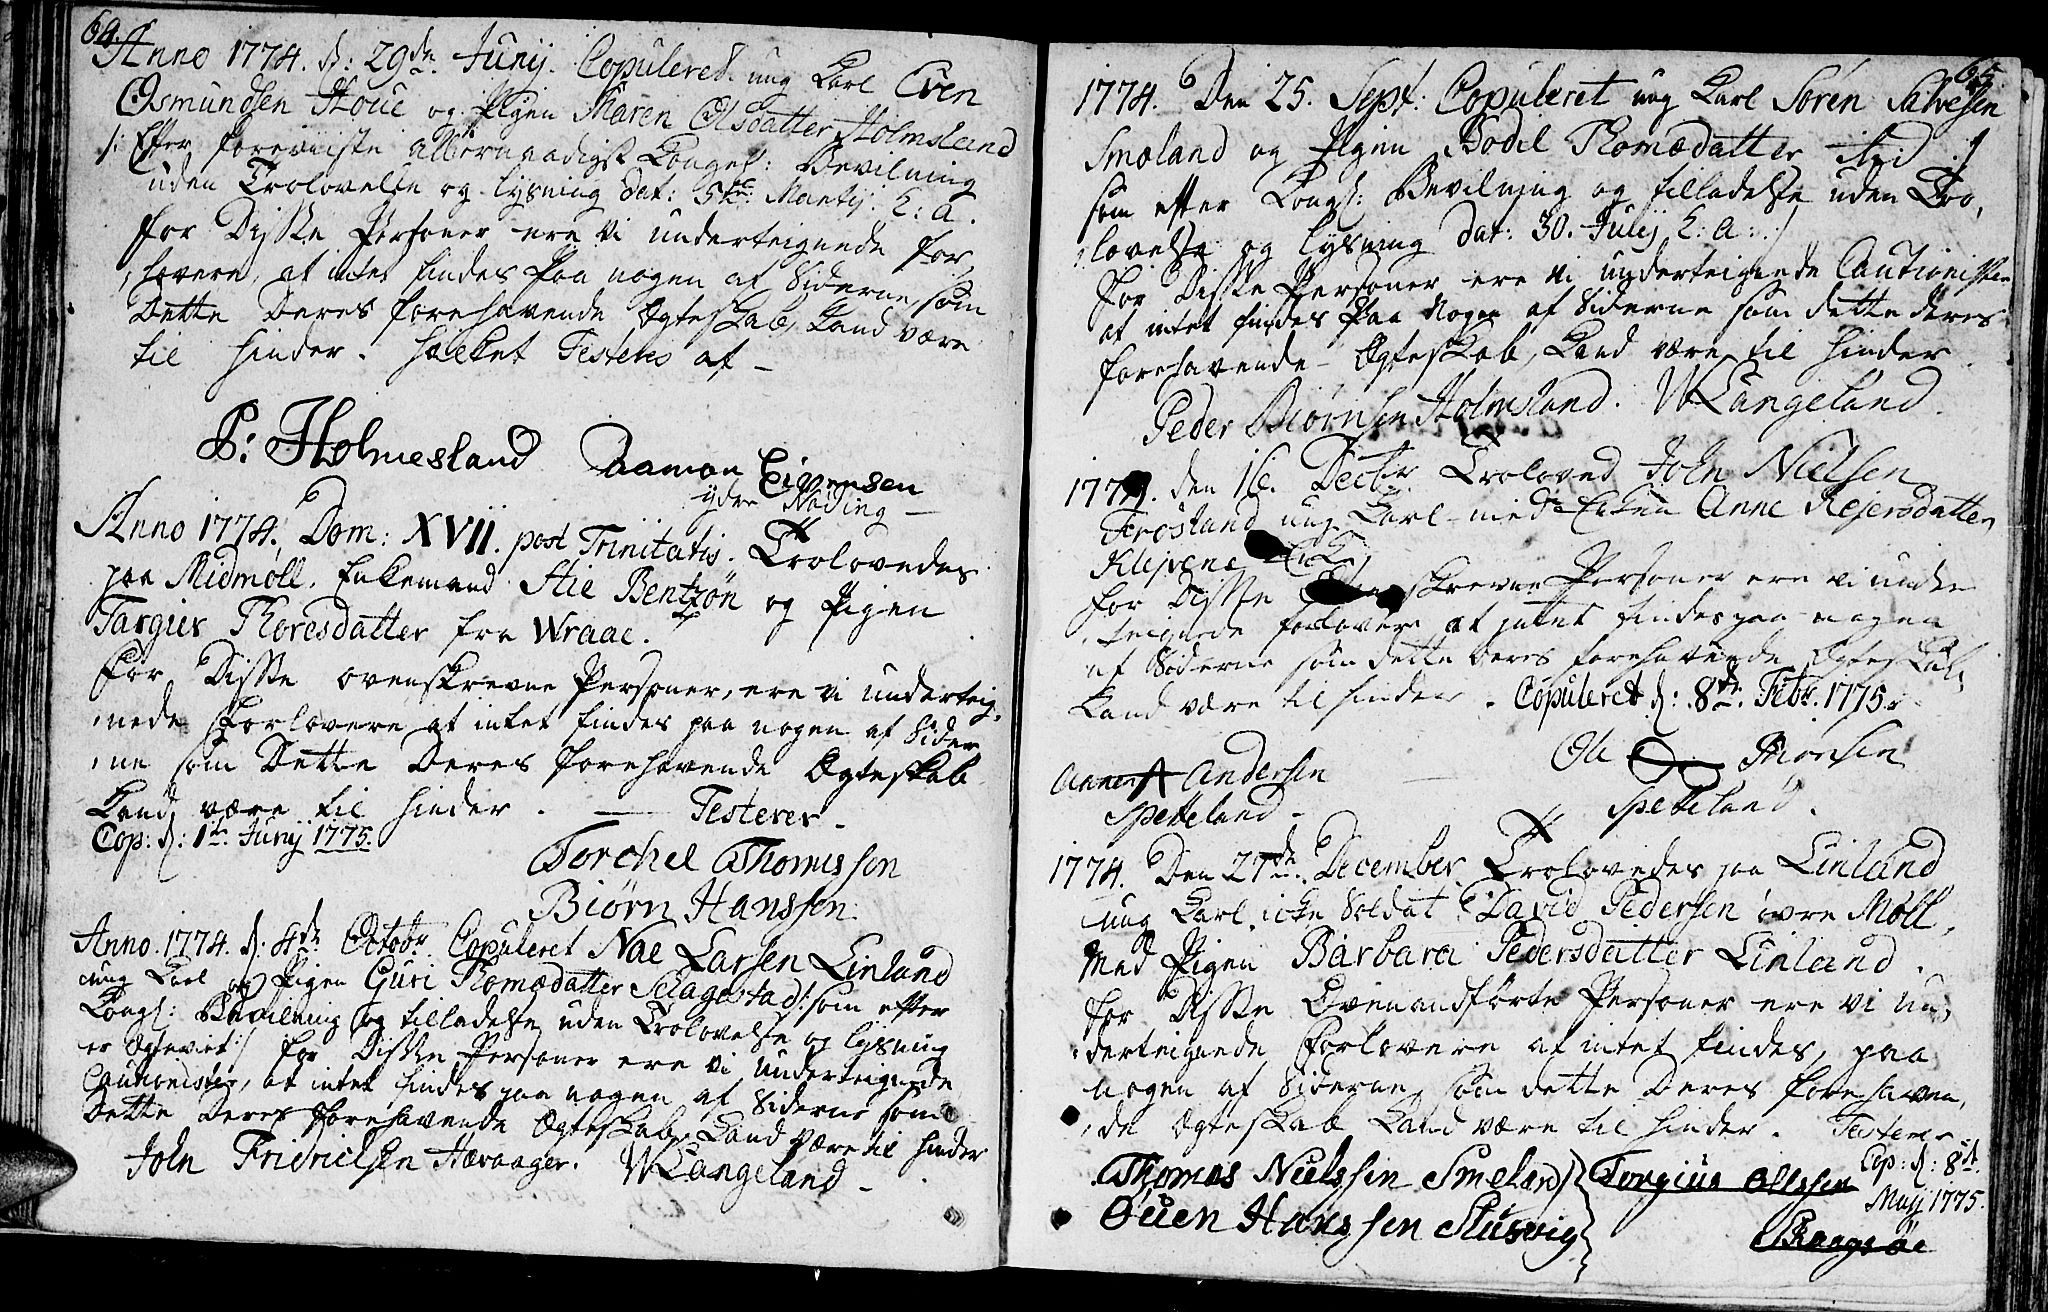 64.
Anno 1774. d: 29de Junij. Copuleret ung Karl Even
Osmundsen Houe og Pigen Maren Olsdatter Holmsland
/: Efter foreviiste allernaadigst Kongel: Bevilning
uden Trolovelse og lysning dat: 5te Martij h: a.
For Disse Personer ere vi underteignede for,
lovere, at intet findes paa nogen af Siderne, som
Dette Deres forehavende Ægteskab, Kand være
til hinder. hvilket Testeres af –
P: Holmesland Aamon Eivensen
ydre Nöding –
Anno 1774. Dom: XVII. post Trinitatis. Trolovedes
paa Midmøll, Enkemand Stie Bentzøn og Pigen
Targier Thoresdatter fra Wraae.
For Disse ovenskrevne Personer, ere vi underteig,
nede Forlovere at intet findes paa nogen af Sider
ne som Dette Deres forehavende Ægteskab
Kand være til hinder. — Testerer –
Cop: d: 1te Junij 1775.
Torchel Thomissen
Biørn Hanssen.
Anno. 1774. d. 4de Octobr Copuleret Nae Larsen Linland
ung Karl og Pigen Guri Thomædatter Selagestad /: som efter
Kongl: Bevilning og tilladelse uden Trolovelse og lysning
er Ægteviet :/ For Disse Personer ere vi underteignede
Cautionister, at intet findes paa nogen af Siderne som
Dette Deres forehavende Ægteskab, Kand være til hinder
John Fridrichsen Hævaager. WLangeland –
65
1774. Den 25. Sept: Copuleret ung Karl Søren Salvesen
Smoland og Pigen Bodil Thomædatter ibid. /
som efter Kongl: Bevilning og tilladelse uden Tro,
lovelse og lysning dat: 30. Julij h: a: /
For Disse Personer ere vi underteignede Cautionister
at intet findes paa Nogen af Siderne som dette deres
forehavende Ægteskab, Kand være til hinder
Peder Biørnsen Holmsland. WLangeland.
1774. den 16. Decbr. Troloved John Nielsen
Frøsland ung Karl med Enken Anne Rejersdatter
Klejvene
For Disse skrevne Personer ere vi unde
teignede forlovere at intet findes paa nogen
af Siderne som dette deres forehavende Ægteskab,
Kand være til hinder. Copuleret d: 8de Febr. 1775.
Ole Biønsen
Anners Andersen
Spetteland – Spetteland.
1774. Den 27de December Trolovedes paa Linland
ung Karl, icke Soldat David Pedersen øvre Møll,
med Pigen Barbara Pedersdatter Linland.
For Disse Ovenanførte Personer ere vi un,
derteignede Forlovere at intet findes, paa
nogen af Siderne, som dette Deres forehaven,
de Ægteskab Kand være til hinder. Testerer –
Cop: d: 8de
May 1775.
Thomas Nielssen Smeland Torgius Ollssen
Øuen Hanssen Slusvig